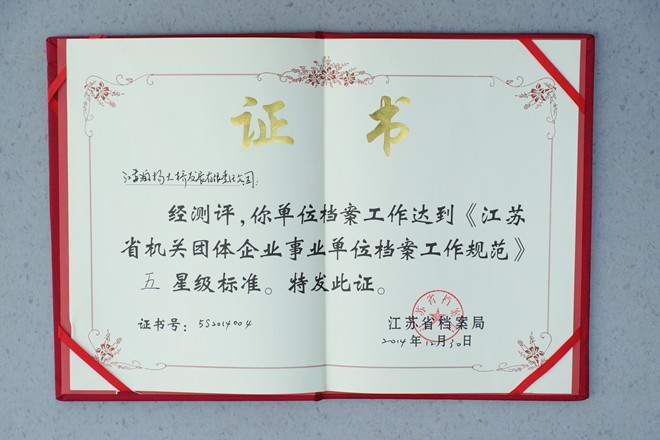 证 书
江苏润扬大桥发展有限责任公司：
经测评，你单位档案工作达到《江苏
省机关团体企业事业单位档案工作规范》
五 星级标准。特发此证。
证书号：5S2014004
江苏省档案局
2014年12月30日